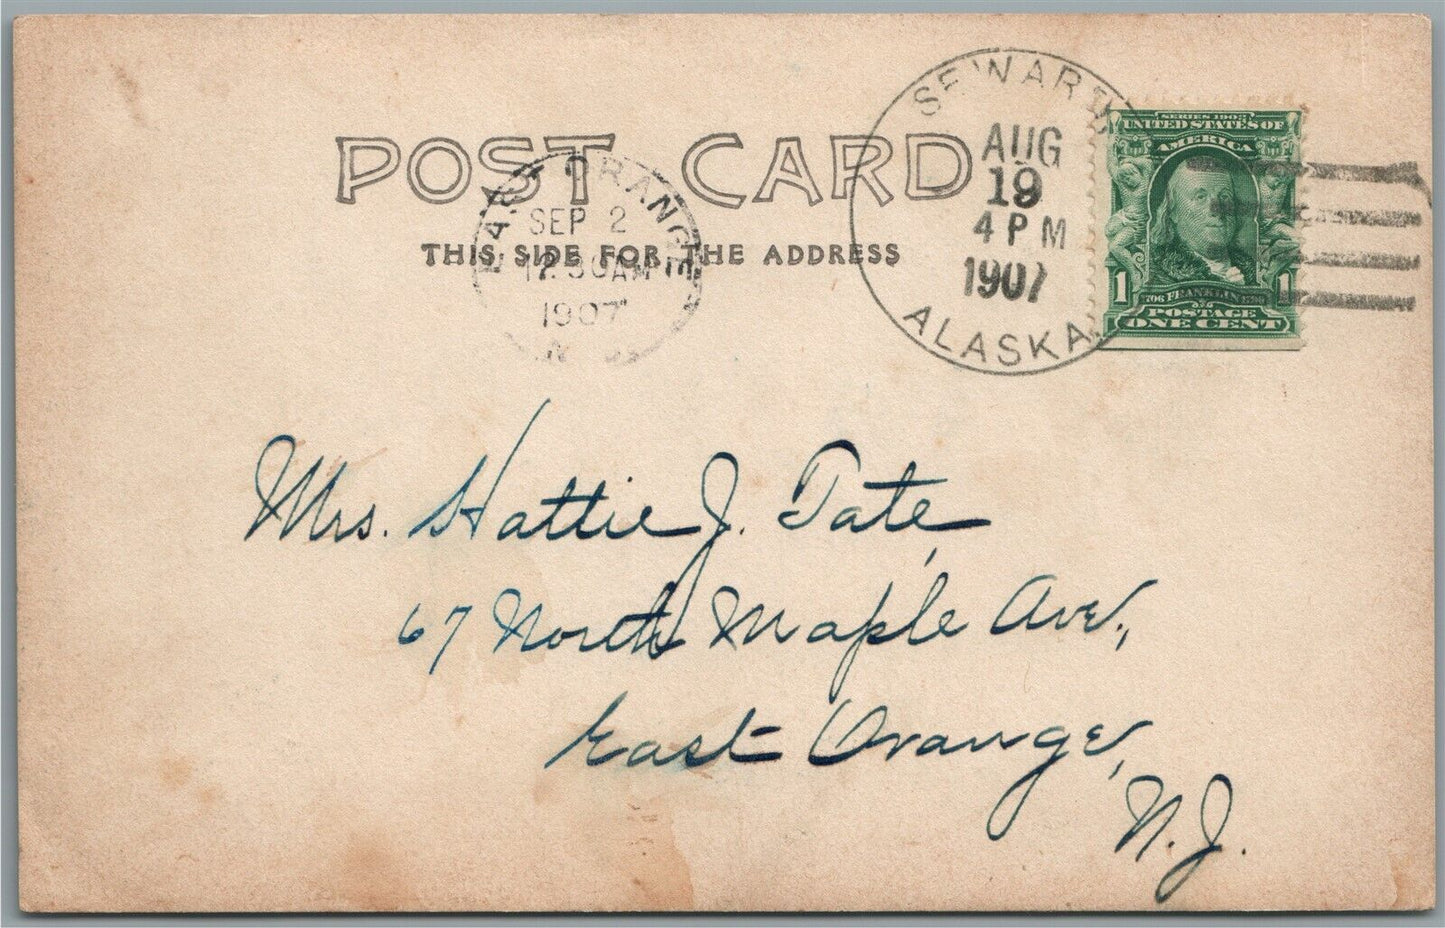 POST CARD
THIS SIDE FOR THE ADDRESS
EAST ORANGE
SEP 2
12.30 AM
1907
N. J.
SEWARD
AUG
19
4 PM
1907
ALASKA
SERIES 1902
UNITED STATES OF
AMERICA
1 1
1706 FRANKLIN 1790
POSTAGE
ONE CENT
Mrs. Hattie J. Tate,
67 North Maple Ave.,
East Orange,
N. J.